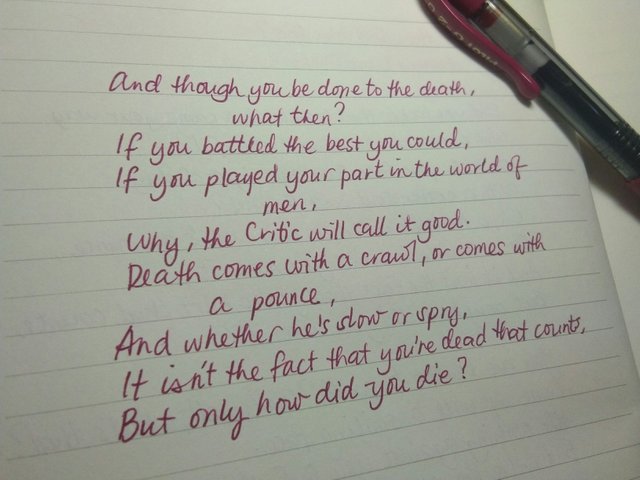 And though you be done to the death,
what then?
If you battled the best you could,
If you played your part in the world of
men,
Why, the Critic will call it good.
Death comes with a crawl, or comes with
a pounce,
And whether he's slow or spry,
It isn't the fact that you're dead that counts,
But only how did you die?